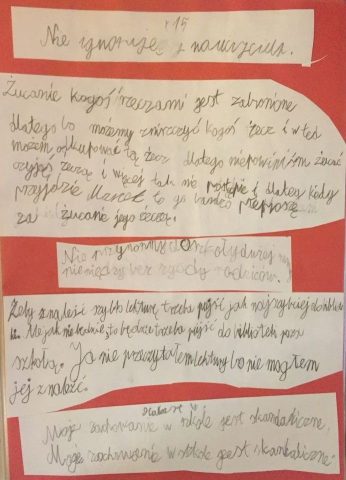 r 15
Nie ignoruję z nauczyciela.
Żucanie kogoś rzeczami jest zabronione
dlatego bo możemy zniszczyć kogoś żecz i wted
możem odkupować tą żecz dlatego niepowiniśm żucać
czyjąś żeczą i więcej tak nie postąpie i dlatego kiedy
przyjdzie Marcel to go bardzo przeproszę
za żucanie jego żeczą.
Nie przynoszę do szkoły dużej
pieniędzy bez zgody rodziców.
Żeby znaleść szybko lekturę trzeba pójść jak najszybciej do bibliote
Ale jak nie będzie, to będzie trzeba pójść do bibliotek poza
szkołą. Ja nie przeczytałem lektury bo nie mogłem
jej znaleść.
Moje zachowanie w szkole jest skandaliczne.
Moje zachowanie w szkole jest skandaliczne.